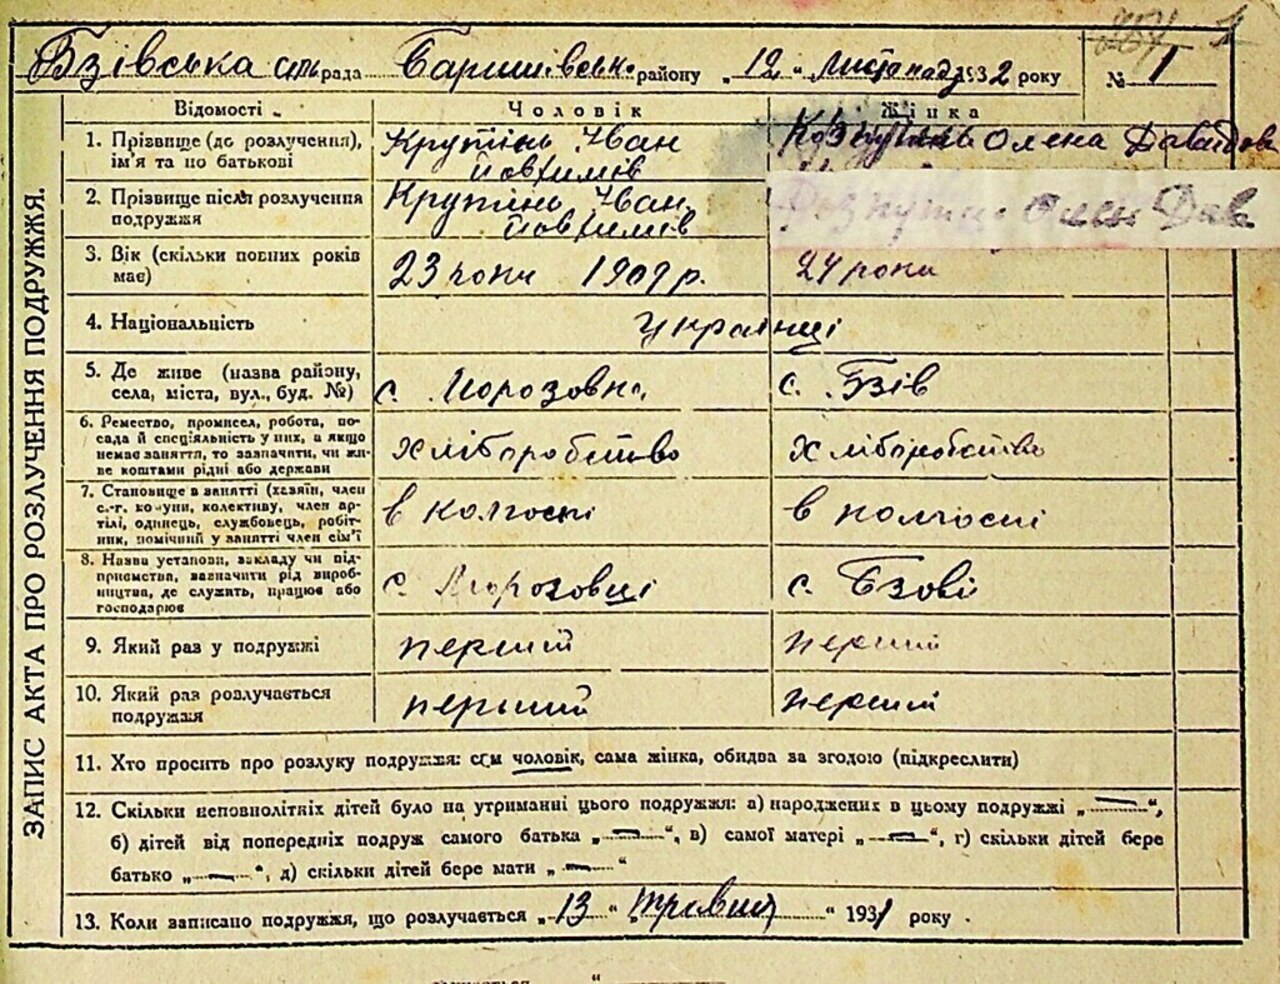 № 1
Бзівська сільрада Баришівськ. району „12“ листопада 1932 року
Відомості Чоловік Жінка
1. Прізвище (до розлучення), ім'я та по батькові
Крутінь Іван
Йовхимів
Олена Давидов
2. Прізвище після розлучення подружжя
Крутінь Іван
Йовхимів
Олен Дав
3. Вік (скільки повних років має)
23 роки 1909 р. 24 роки
4. Національність
Українці
5. Де живе (назва району, села, міста, вул., буд. №)
с. Морозовка с. Бзів
6. Ремество, промисел, робота, по-
сада й спеціяльність у них, а якщо
немає заняття, то зазначити, чи жи-
ве коштами рідні або держави
хліборобство хліборобство
7. Становище в занятті (хазяїн, член
с.-г. комуни, колективу, член ар-
тілі, одинець, службовець, робіт-
ник, помічний у занятті член сім'ї
в колгоспі в колгоспі
8. Назва установи, закладу чи під-
приємства, зазначити рід вироб-
ництва, де служить, працює або
господарює
с. Морозовці с. Бзові
9. Який раз у подружжі
перший перший
10. Який раз розлучається
подружжя
перший перший
11. Хто просить про розлуку подружжя: сам чоловік, сама жінка, обидва за згодою (підкреслити)
12. Скільки неповнолітніх дітей було на утриманні цього подружжя: а) народжених в цьому подружжі „—“,
б) дітей від попередніх подруж самого батька „—“, в) самої матері „—“, г) скільки дітей бере
батько „—“, д) скільки дітей бере мати „—“
13. Коли записано подружжя, що розлучається „13“ „травня“ 1931 року.
ЗАПИС АКТА ПРО РОЗЛУЧЕННЯ ПОДРУЖЖЯ.